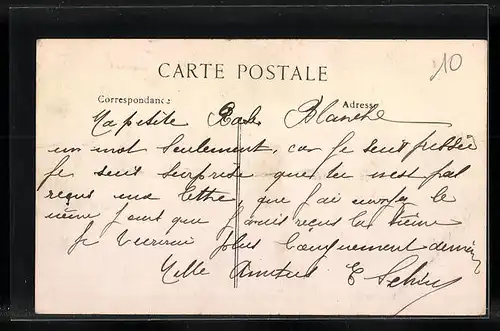 10
CARTE POSTALE
Correspondance Adresse
Ma petite Blanche
un mot seulement, car je suit pressée
je suit surprise que tu n'est pas
reçus ma lettre, que j'ai envoyez le
même jour que j'avais reçus la tienne
Je t'ecrirai plus longuement demain
Mille Amitiés E